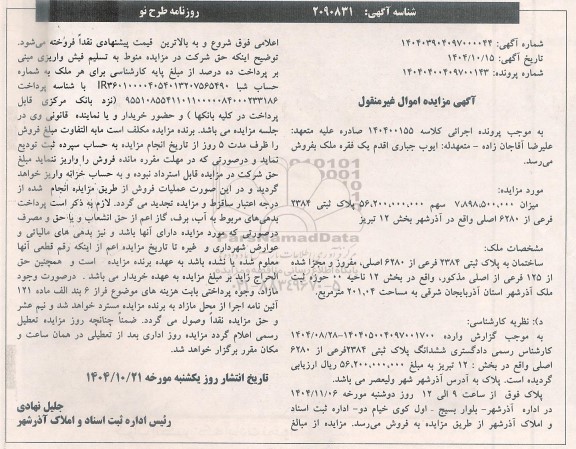 شناسه آگهی: ۲۰۹۰۸۳۱
روزنامه طرح نو
شماره آگهی: ۱۴۰۴۰۳۹۰۴۰۹۷۰۰۰۰۴۴
تاریخ آگهی: ۱۴۰۴/۱۰/۱۵
شماره پرونده: ۱۴۰۴۰۴۰۰۴۰۹۷۰۰۱۴۳
آگهی مزایده اموال غیرمنقول
به موجب پرونده اجرائی کلاسه ۱۴۰۴۰۰۱۵۵ صادره علیه متعهد:
علیرضا آقاجان زاده - متعهدله: ایوب جباری اقدم یک فقره ملک بفروش
می‌رسد.
مورد مزایده:
میزان ۷،۸۹۸،۵۰۰،۰۰۰ سهم ۵۶،۲۰۰،۰۰۰،۰۰۰ پلاک ثبتی ۲۳۸۴
فرعی از ۶۲۸۰ اصلی واقع در آذرشهر بخش ۱۲ تبریز
مشخصات ملک:
ساختمان به پلاک ثبتی ۲۳۸۴ فرعی از ۶۲۸۰ اصلی، مفروز و مجزا شده
از ۱۲۵ فرعی از اصلی مذکور، واقع در بخش ۱۲ ناحیه ۰۰ حوزه ثبت
ملک آذرشهر استان آذربایجان شرقی به مساحت ۲۰۱.۰۴ مترمربع.
د): نظریه کارشناسی:
به موجب گزارش وارده ۱۴۰۴۰۵۰۰۴۰۹۷۰۰۱۷۰۰-۱۴۰۴/۰۸/۲۸
کارشناس رسمی دادگستری ششدانگ پلاک ثبتی ۲۳۸۴فرعی از ۶۲۸۰
اصلی واقع در بخش : ۱۲ تبریز به مبلغ ۵۶،۲۰۰،۰۰۰،۰۰۰ ریال ارزیابی
گردیده است. پلاک به آدرس آذرشهر شهر ولیعصر می باشد.
پلاک فوق از ساعت ۹ الی ۱۲ روز دوشنبه مورخه ۱۴۰۴/۱۱/۰۶
در اداره آذرشهر- بلوار بسیج . اول کوی خیام دو- اداره ثبت اسناد
و املاک آذرشهر از طریق مزایده به فروش می‌رسد. مزایده از مبالغ
اعلامی فوق شروع و به بالاترین قیمت پیشنهادی نقداً فروخته می‌شود.
توضیح اینکه حق شرکت در مزایده منوط به تسلیم فیش واریزی مبنی
بر پرداخت ده درصد از مبلغ پایه کارشناسی برای هر ملک به شماره
حساب شبا IR۳۶۰۱۰۰۰۰۴۰۵۴۰۱۳۲۰۷۵۶۵۴۹۰ با شناسه پرداخت
۹۵۵۱۰۸۵۵۴۱۱۰۱۱۰۰۰۰۰۸۴۰۰۰۲۳۳۱۸۶ (نزد بانک مرکزی قابل
پرداخت در کلیه بانکها ) و حضور خریدار و یا نماینده قانونی وی در
جلسه مزایده می باشد. برنده مزایده مکلف است مابه التفاوت مبلغ فروش
را ظرف مدت ۵ روز از تاریخ انجام مزایده به حساب سپرده ثبت تودیع
نماید و درصورتی که در مهلت مقرره مانده فروش را واریز ننماید مبلغ
حق شرکت در مزایده قابل استرداد نبوده و به حساب خزانه واریز خواهد
گردید و در این صورت عملیات فروش از طریق مزایده انجام شده از
درجه اعتبار ساقط و مزایده تجدید می گردد. لازم به ذکر است پرداخت
بدهی‌های مربوط به آب، برق، گاز اعم از حق انشعاب و یا حق و مصرف
درصورتی که مورد مزایده دارای آنها باشد و نیز بدهی های مالیاتی و
عوارض شهرداری و غیره تا تاریخ مزایده اعم از اینکه رقم قطعی آنها
معلوم شده یا نشده باشد به عهده برنده مزایده است و همچنین حق
الحراج زاید بر مبلغ مزایده به عهده خریدار می باشد . درصورت وجود
مازاد، وجوه پرداختی بابت هزینه های موضوع فراز ۶ بند الف ماده ۱۲۱
آئین نامه اجرا از محل مازاد به برنده مزایده مسترد خواهد شد و نیم عشر
و حق مزایده نقداً وصول می گردد. ضمناً چنانچه روز مزایده تعطیل
رسمی اعلام گردد مزایده روز اداری بعد از تعطیلی در همان ساعت و
مکان مقرر برگزار خواهد شد.
تاریخ انتشار روز یکشنبه مورخه ۱۴۰۴/۱۰/۲۱
جلیل نهادی
رئیس اداره ثبت اسناد و املاک آذرشهر
ParsNamadData